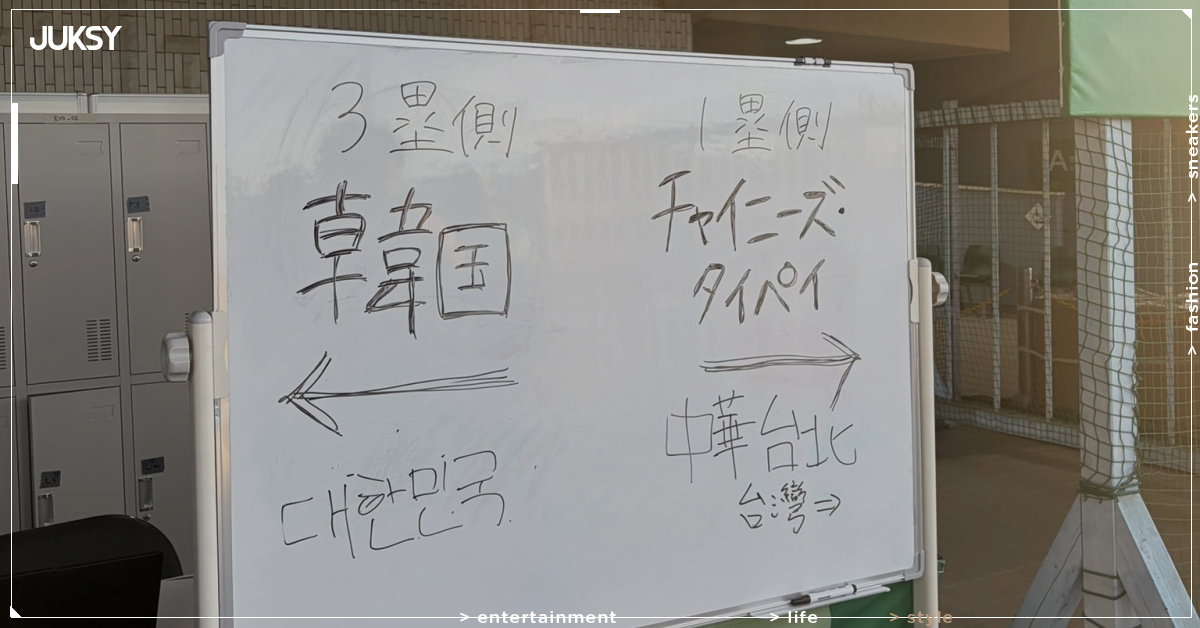 JUKSY
3塁側
韓国
←
대한민국
1塁側
チャイニーズ・
タイペイ
→
中華台北
台灣⇒
> sneakers
> fashion
> entertainment
> life
> style